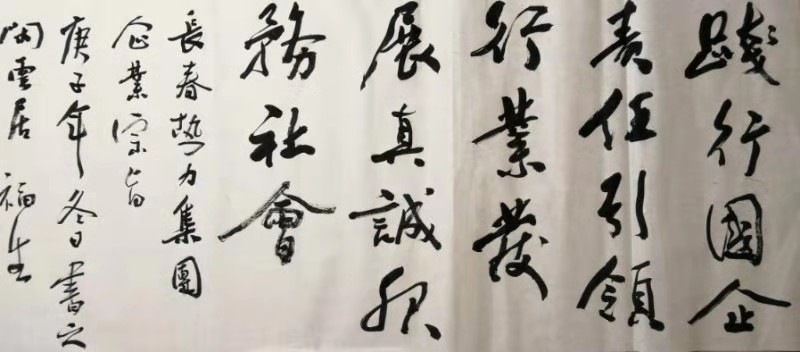 踐行國企
責任引領
行業發
展真誠服
務社會
長春熱力集團
企業宗旨
庚子年冬日書之
閑雲居 福生